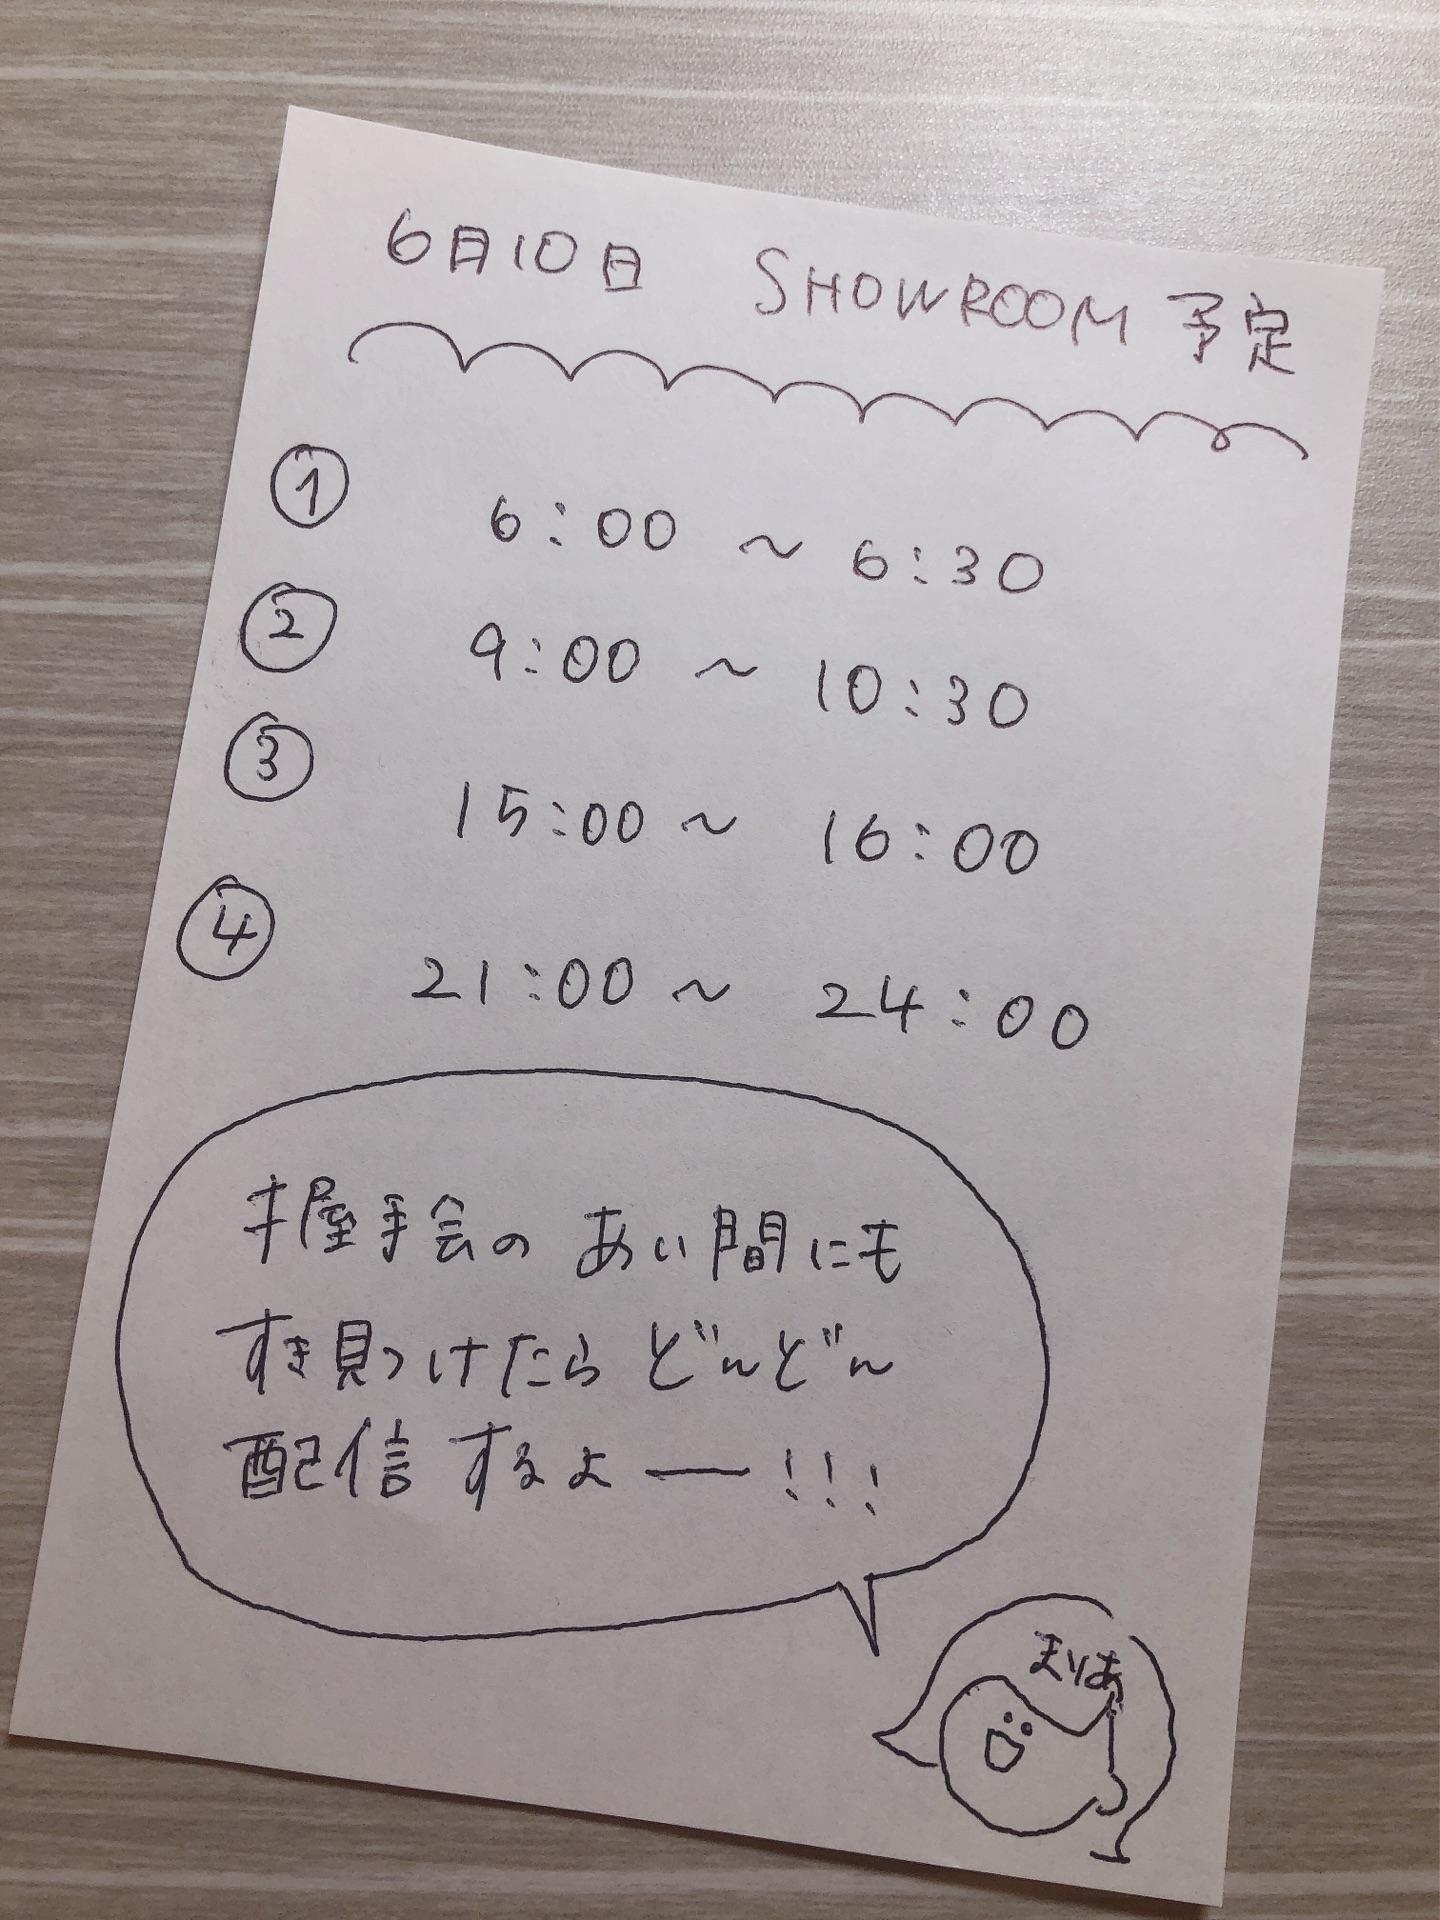 6月10日 SHOWROOM 予定
① 6:00 ~ 6:30
② 9:00 ~ 10:30
③ 15:00 ~ 16:00
④ 21:00 ~ 24:00
握手会の あい間にも
すき見つけたら どんどん
配信するよー!!!
まりあ